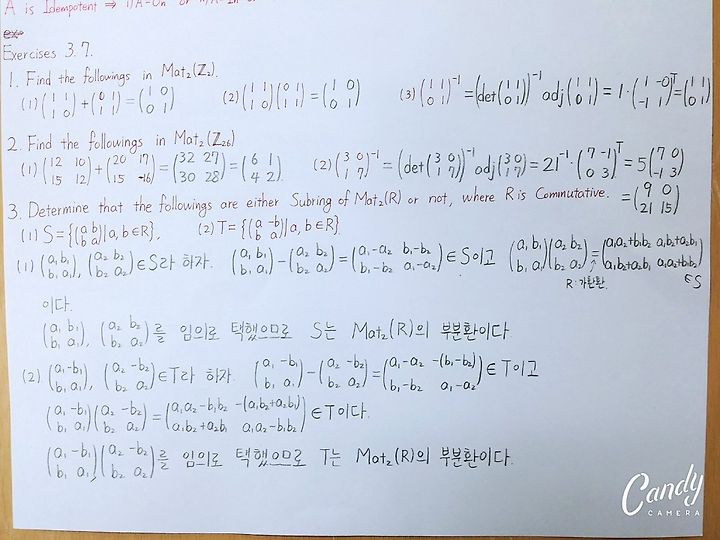 A is Idempotent ⇒ i) A=On or ii) A=In or
ex
Exercises 3.7.
1. Find the followings in Mat₂(ℤ₂).
(1) (1 1 / 1 0) + (0 1 / 1 1) = (1 0 / 0 1) (2) (1 1 / 1 0)(0 1 / 1 1) = (1 0 / 0 1) (3) (1 1 / 0 1)⁻¹ = (det(1 1 / 0 1))⁻¹ adj(1 1 / 0 1) = 1·(1 -0 / -1 1)ᵀ = (1 1 / 0 1)
2. Find the followings in Mat₂(ℤ₂₆)
(1) (12 10 / 15 12) + (20 17 / 15 16) = (32 27 / 30 28) = (6 1 / 4 2). (2) (3 0 / 1 7)⁻¹ = (det(3 0 / 1 7))⁻¹ adj(3 0 / 1 7) = 21⁻¹·(7 -1 / 0 3)ᵀ = 5(7 0 / -1 3)
= (9 0 / 21 15)
3. Determine that the followings are either Subring of Mat₂(R) or not, where R is Commutative.
(1) S={(a b / b a)|a, b∈R}. (2) T={(a -b / b a)|a, b∈R}
(1) (a₁ b₁ / b₁ a₁), (a₂ b₂ / b₂ a₂)∈S라 하자. (a₁ b₁ / b₁ a₁)-(a₂ b₂ / b₂ a₂)=(a₁-a₂ b₁-b₂ / b₁-b₂ a₁-a₂)∈S이고 (a₁ b₁ / b₁ a₁)(a₂ b₂ / b₂ a₂)=(a₁a₂+b₁b₂ a₁b₂+a₂b₁ / a₁b₂+a₂b₁ a₁a₂+b₁b₂)
R:가환환. ∈S
이다.
(a₁ b₁ / b₁ a₁), (a₂ b₂ / b₂ a₂)를 임의로 택했으므로 S는 Mat₂(R)의 부분환이다
(2) (a₁ -b₁ / b₁ a₁), (a₂ -b₂ / b₂ a₂)∈T라 하자. (a₁ -b₁ / b₁ a₁)-(a₂ -b₂ / b₂ a₂)=(a₁-a₂ -(b₁-b₂) / b₁-b₂ a₁-a₂)∈T이고
(a₁ -b₁ / b₁ a₁)(a₂ -b₂ / b₂ a₂)=(a₁a₂-b₁b₂ -(a₁b₂+a₂b₁) / a₁b₂+a₂b₁ a₁a₂-b₁b₂)∈T이다.
(a₁ -b₁ / b₁ a₁), (a₂ -b₂ / b₂ a₂)를 임의로 택했으므로 T는 Mat₂(R)의 부분환이다.
Candy
CAMERA